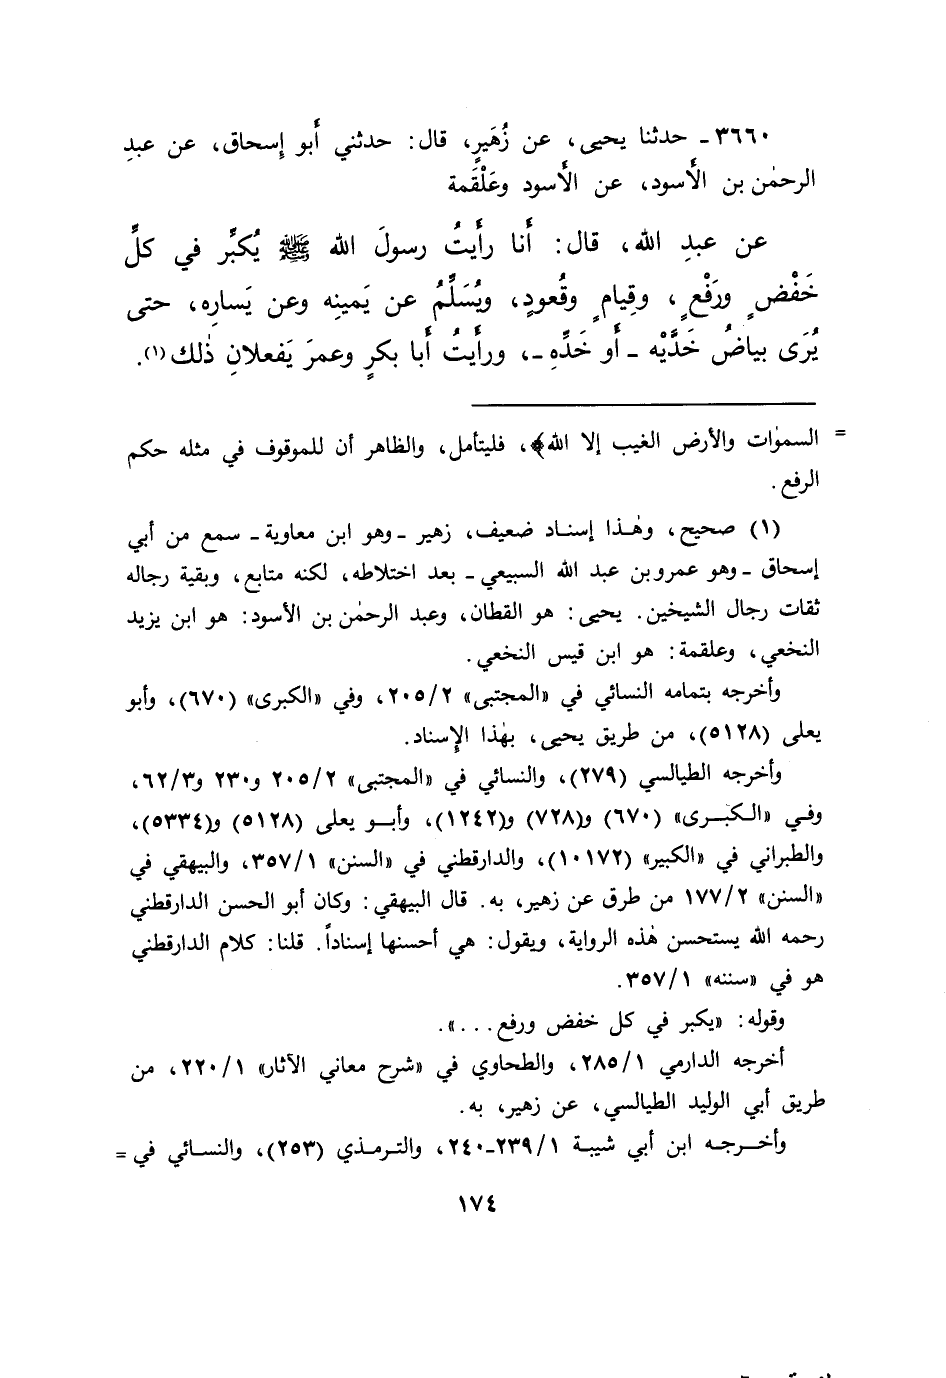 ٣٦٦٠ـ حدثنا يحيى، عن زُهَيرٍ، قال: حدثني أَبو إسحاق، عن عبدِ
الرحمٰن بن الأَسود، عن الأَسود وعَلْقَمة
عن عبدِ الله، قال: أَنا رأَيتُ رسولَ الله ﷺ يُكبِّر في كلِّ
خَفْضٍ ورَفْعٍ، وقِيامٍ وقُعودٍ، ويُسَلِّمُ عن يَمينِه وعن يَسارِه، حتى
يُرَى بياضُ خَدَّيْه ـ أَو خَدِّهِ ـ، ورأَيتُ أَبا بكرٍ وعمرَ يَفعلانِ ذٰلك(١).
= السمٰوات والأرض الغيب إلا الله﴾، فليتأمل، والظاهر أن للموقوف في مثله حكم
الرفع.
(١) صحيح، وهٰذا إسناد ضعيف، زهير ـ وهو ابن معاوية ـ سمع من أبي
إسحاق ـ وهو عمرو بن عبد الله السبيعي ـ بعد اختلاطه، لكنه متابع، وبقية رجاله
ثقات رجال الشيخين. يحيى: هو القطان، وعبد الرحمٰن بن الأسود: هو ابن يزيد
النخعي، وعلقمة: هو ابن قيس النخعي.
وأخرجه بتمامه النسائي في «المجتبى» ٢٠٥/٢، وفي «الكبرى» (٦٧٠)، وأبو
يعلى (٥١٢٨)، من طريق يحيى، بهٰذا الإسناد.
وأخرجه الطيالسي (٢٧٩)، والنسائي في «المجتبى» ٢٠٥/٢ و٢٣٠ و٦٢/٣،
وفي «الكبرى» (٦٧٠) و(٧٢٨) و(١٢٤٢)، وأبو يعلى (٥١٢٨) و(٥٣٣٤)،
والطبراني في «الكبير» (١٠١٧٢)، والدارقطني في «السنن» ٣٥٧/١، والبيهقي في
«السنن» ١٧٧/٢ من طرق عن زهير، به. قال البيهقي: وكان أبو الحسن الدارقطني
رحمه الله يستحسن هٰذه الرواية، ويقول: هي أحسنها إسناداً. قلنا: كلام الدارقطني
هو في «سننه» ٣٥٧/١.
وقوله: «يكبر في كل خفض ورفع...».
أخرجه الدارمي ٢٨٥/١، والطحاوي في «شرح معاني الآثار» ٢٢٠/١، من
طريق أبي الوليد الطيالسي، عن زهير، به.
وأخرجه ابن أبي شيبة ٢٣٩/١-٢٤٠، والترمذي (٢٥٣)، والنسائي في =
١٧٤